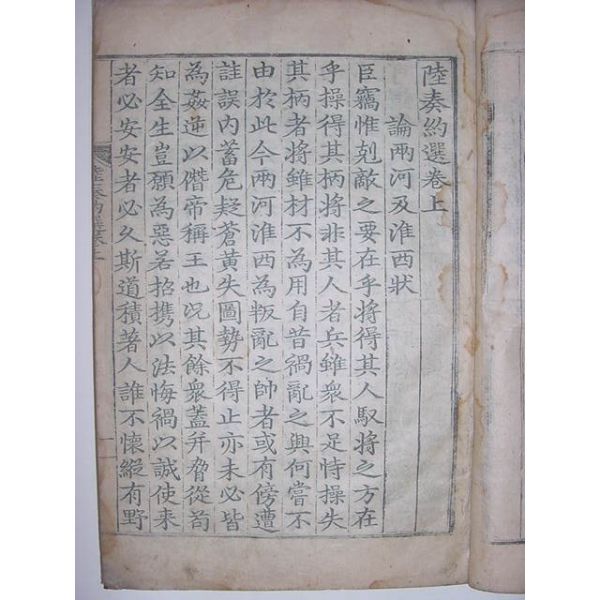 陸奏約選卷上
論兩河及淮西狀
臣竊惟剋敵之要在乎將得其人馭將之方在
乎操得其柄將非其人者兵雖衆不足恃操失
其柄者將雖材不為用自昔禍亂之興何嘗不
由於此今兩河淮西為叛亂之帥者或有傍遭
詿誤內蓄危疑蒼黃失圖勢不得止亦未必皆
為姦逆以僭帝稱王也况其餘衆蓋並脅從苟
知全生豈願為惡若招携以法悔禍以誠使來
者必安安者必久斯道積著人誰不懷縱有野